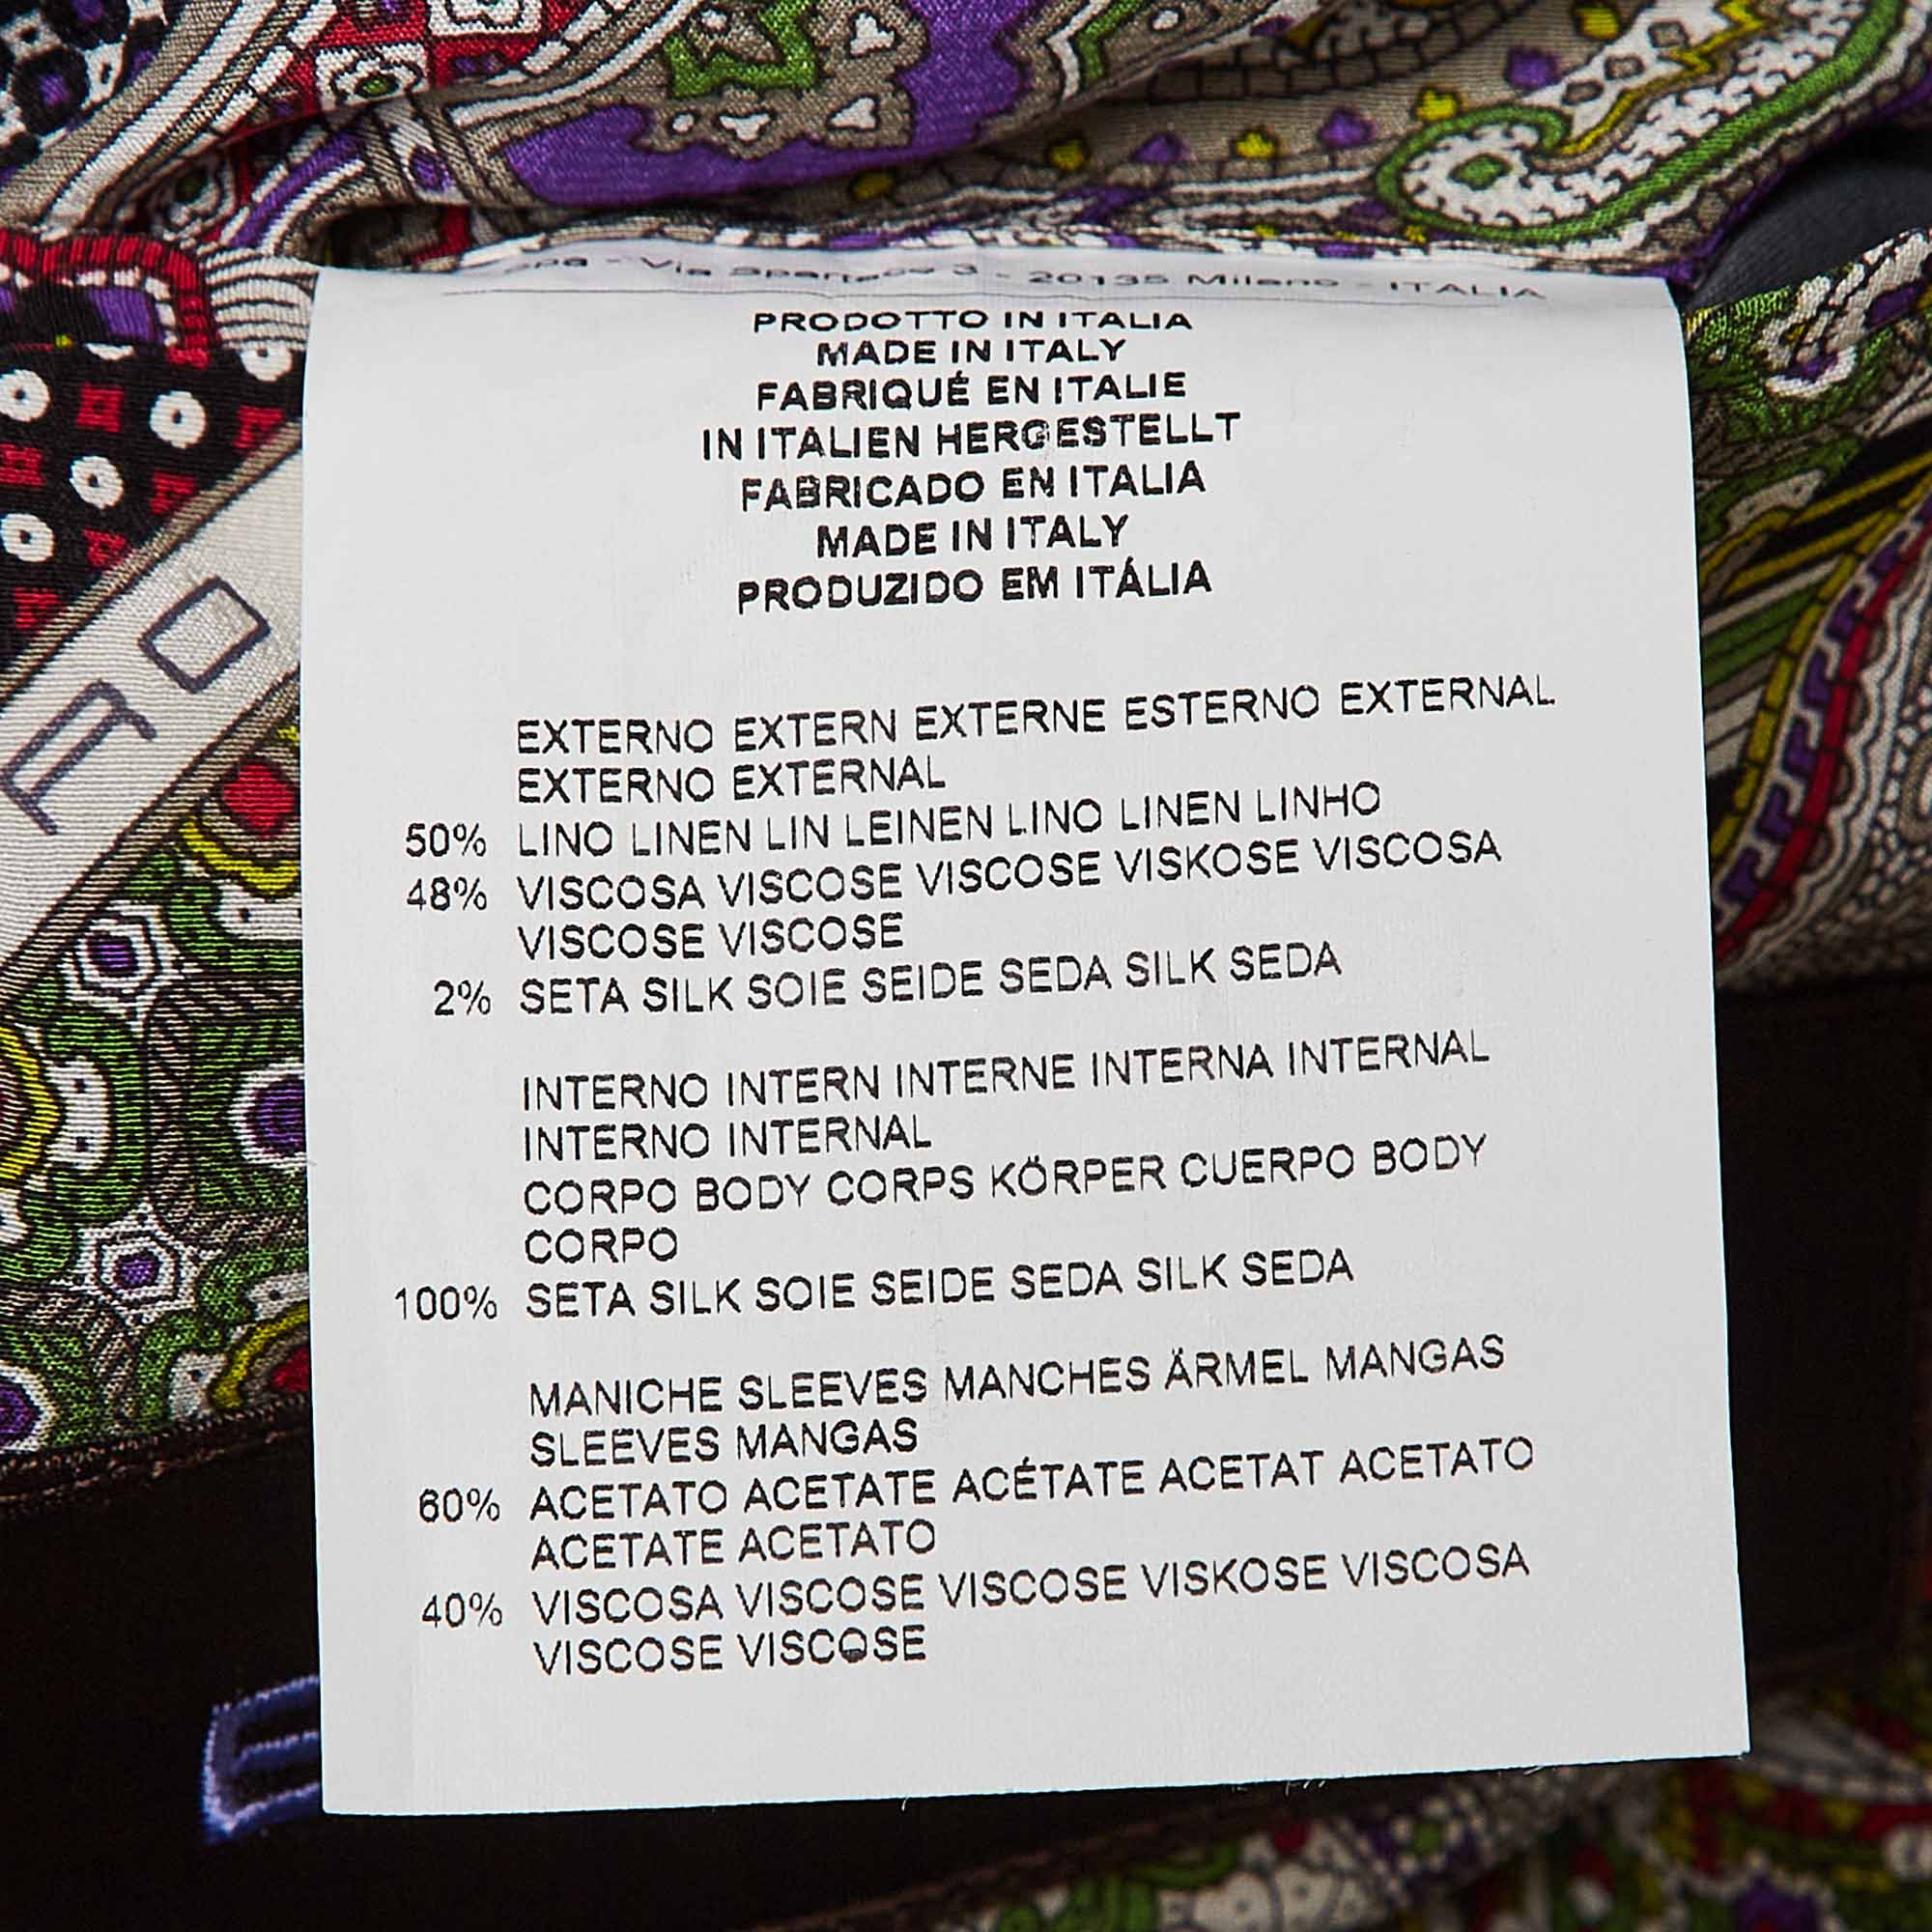 Via Spartaco 3 - 20135 Milano - ITALIA
PRODOTTO IN ITALIA
MADE IN ITALY
FABRIQUÉ EN ITALIE
IN ITALIEN HERGESTELLT
FABRICADO EN ITALIA
MADE IN ITALY
PRODUZIDO EM ITÁLIA
EXTERNO EXTERN EXTERNE ESTERNO EXTERNAL
EXTERNO EXTERNAL
50% LINO LINEN LIN LEINEN LINO LINEN LINHO
48% VISCOSA VISCOSE VISCOSE VISKOSE VISCOSA
VISCOSE VISCOSE
2% SETA SILK SOIE SEIDE SEDA SILK SEDA
INTERNO INTERN INTERNE INTERNA INTERNAL
INTERNO INTERNAL
CORPO BODY CORPS KÖRPER CUERPO BODY
CORPO
100% SETA SILK SOIE SEIDE SEDA SILK SEDA
MANICHE SLEEVES MANCHES ÄRMEL MANGAS
SLEEVES MANGAS
60% ACETATO ACETATE ACÉTATE ACETAT ACETATO
ACETATE ACETATO
40% VISCOSA VISCOSE VISCOSE VISKOSE VISCOSA
VISCOSE VISCOSE